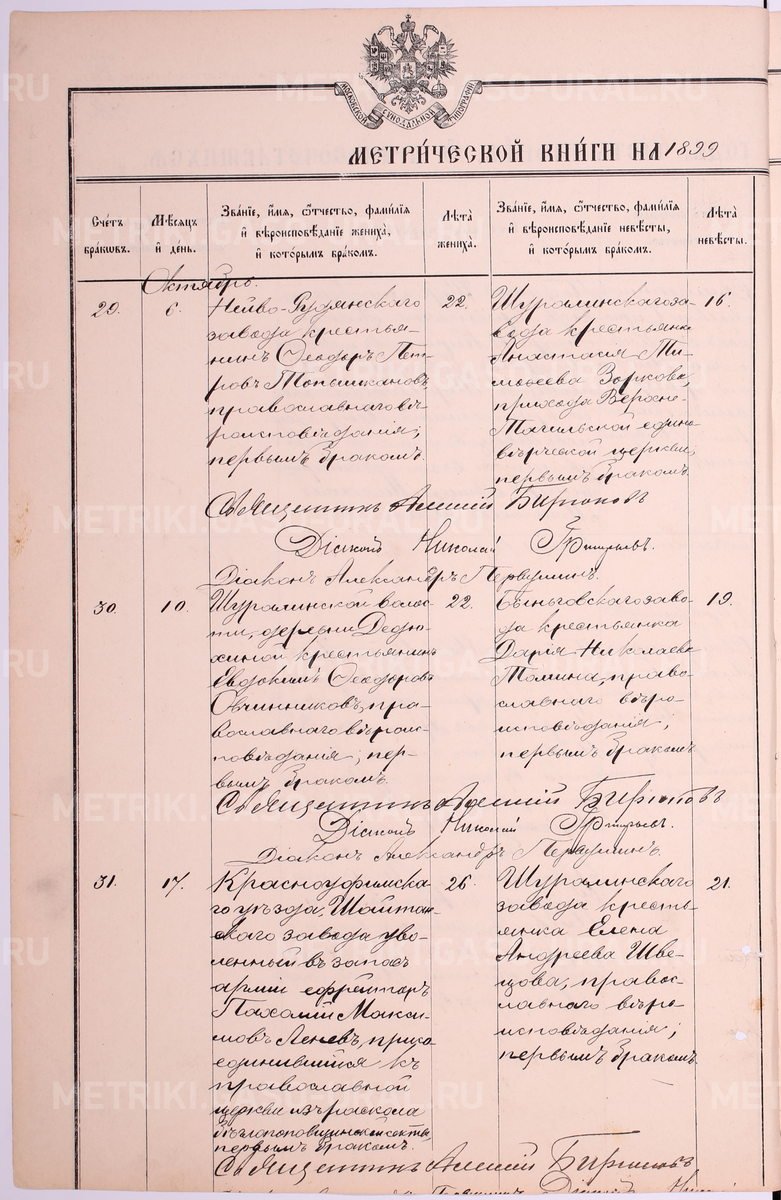 МОСКОВСКОЙ СѴНОДАЛЬНОЙ ТИПОГРАФІИ
МЕТРИЧЕСКОЙ КНИГИ НА 1899
Счетъ браковъ.
Мѣсяцъ и день.
Званіе, имя, отчество, фамилія и вѣроисповѣданіе жениха, и которымъ бракомъ.
Лѣта жениха.
Званіе, имя, отчество, фамилія и вѣроисповѣданіе невѣсты, и которымъ бракомъ.
Лѣта невѣсты.
Октябрь.
29.
6.
Нейво-Рудянскаго
завода крестья-
нинъ Ѳеодоръ Пет-
ровъ
православнаго вѣ-
роисповѣданія;
первымъ бракомъ.
22.
Шуралинскаго за-
вода крестьянка
Анастасія
Зоркова,
прихода Верхне-
Тагильской едино-
вѣрческой церкви,
первымъ бракомъ.
16.
Священникъ Алексій Бирюковъ
Діаконъ Николай Григорьевъ.
Діаконъ Александръ Первушинъ.
30.
10.
Шуралинской волос-
ти, деревни Дедю-
хиной крестьянинъ
Евдокимъ Ѳеодоровъ
Овчинниковъ, пра-
вославнаго вѣроис-
повѣданія; пер-
вымъ бракомъ.
22.
Быньговскаго заво-
да крестьянка
Дарія Николаева
Томина, право-
славнаго вѣро-
исповѣданія;
первымъ бракомъ
19.
Священникъ Алексій Бирюковъ
Діаконъ Николай Григорьевъ.
Діаконъ Александръ Первушинъ.
31.
17.
Красноуфимска-
го уѣзда, Шайтан-
скаго завода уво-
ленный въ запасъ
арміи ефрейторъ
Пахомій Макси-
мовъ присо-
единившійся къ
православной
церкви изъ раскола
бѣглопоповщинской секты
первымъ бракомъ.
26.
Шуралинскаго
завода кресть-
янка Елена
Андреева Шве-
цова, правос-
лавнаго вѣро-
исповѣданія;
первымъ бракомъ.
21.
Священникъ Алексій Бирюковъ
METRIKI.GASO-URAL.RU